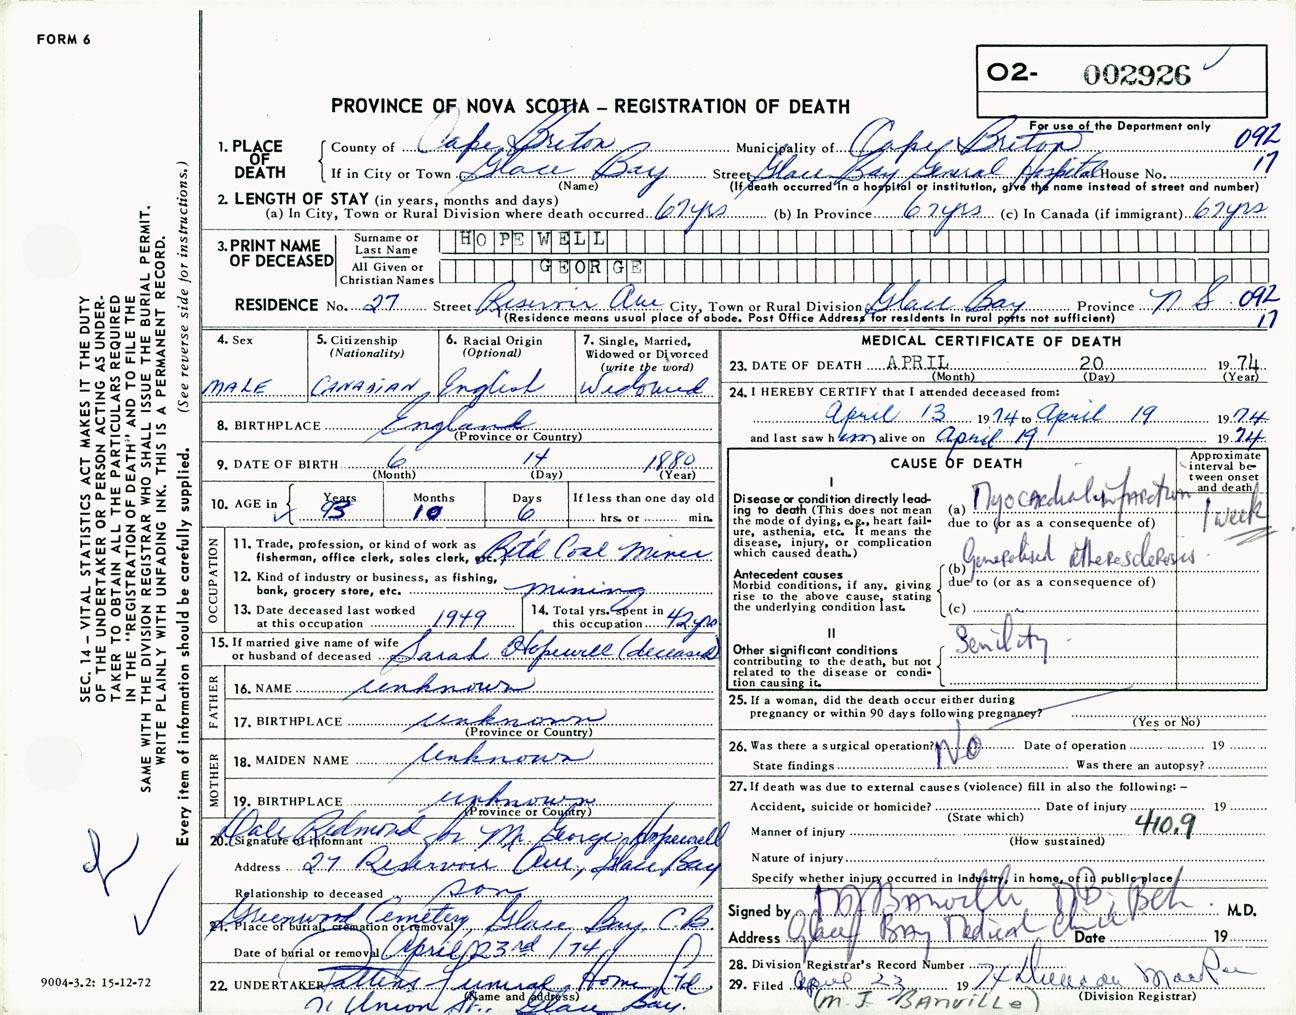 FORM 6
O2- 002926
PROVINCE OF NOVA SCOTIA – REGISTRATION OF DEATH
For use of the Department only
092
17
1. PLACE OF DEATH
County of Cape Breton Municipality of Cape Breton
If in City or Town Glace Bay Street Glace Bay General Hospital House No.
(Name) (If death occurred in a hospital or institution, give the name instead of street and number)
2. LENGTH OF STAY (in years, months and days)
(a) In City, Town or Rural Division where death occurred 67 yrs (b) In Province 67 yrs (c) In Canada (if immigrant) 67 yrs
3. PRINT NAME OF DECEASED
Surname or Last Name HOPEWELL
All Given or Christian Names GEORGE
RESIDENCE No. 27 Street Reservoir Ave City, Town or Rural Division Glace Bay Province N S 092
(Residence means usual place of abode. Post Office Address for residents in rural parts not sufficient) 17
4. Sex
MALE
5. Citizenship
(Nationality)
CANADIAN
6. Racial Origin
(Optional)
English
7. Single, Married,
Widowed or Divorced
(write the word)
Widowed
8. BIRTHPLACE England
(Province or Country)
9. DATE OF BIRTH 6 14 1880
(Month) (Day) (Year)
10. AGE in Years 93 Months 10 Days 6 If less than one day old
hrs. or min.
OCCUPATION
11. Trade, profession, or kind of work as
fisherman, office clerk, sales clerk, etc. Ret'd Coal Miner
12. Kind of industry or business, as fishing,
bank, grocery store, etc. mining
13. Date deceased last worked
at this occupation 1949
14. Total yrs. spent in
this occupation 42 yrs
15. If married give name of wife
or husband of deceased Sarah Hopewell (deceased)
FATHER
16. NAME unknown
17. BIRTHPLACE unknown
(Province or Country)
MOTHER
18. MAIDEN NAME unknown
19. BIRTHPLACE unknown
(Province or Country)
20. Signature of informant Dale Redmond for Mr. George Hopewell
Address 27 Reservoir Ave., Glace Bay
Relationship to deceased son
21. Place of burial, cremation or removal Greenwood Cemetery Glace Bay, C.B.
Date of burial or removal April 23rd /74
22. UNDERTAKER Pattens Funeral Home Ltd
(Name and address)
71 Union St., Glace Bay.
MEDICAL CERTIFICATE OF DEATH
23. DATE OF DEATH APRIL 20 1974
(Month) (Day) (Year)
24. I HEREBY CERTIFY that I attended deceased from:
April 13 1974 to April 19 1974
and last saw him alive on April 19 1974
CAUSE OF DEATH
Approximate interval between onset and death
I
Disease or condition directly leading to death (This does not mean the mode of dying, e.g., heart failure, asthenia, etc. It means the disease, injury, or complication which caused death.)
(a) Myocardial infarction 1 week
due to (or as a consequence of)
Antecedent causes
Morbid conditions, if any, giving rise to the above cause, stating the underlying condition last.
(b) Generalised atherosclerosis.
due to (or as a consequence of)
(c)
II
Other significant conditions
contributing to the death, but not related to the disease or condition causing it.
Senility
25. If a woman, did the death occur either during
pregnancy or within 90 days following pregnancy?
(Yes or No)
26. Was there a surgical operation? No Date of operation 19
State findings Was there an autopsy?
27. If death was due to external causes (violence) fill in also the following: –
Accident, suicide or homicide? Date of injury 19
(State which)
Manner of injury 410.9
(How sustained)
Nature of injury
Specify whether injury occurred in industry, in home, or in public place
Signed by M Banville M.D.
Address Glace Bay Medical Clinic Date 19
28. Division Registrar's Record Number
29. Filed April 23 1974
(Division Registrar)
(M. J. BANVILLE)
SEC. 14 – VITAL STATISTICS ACT MAKES IT THE DUTY
OF THE UNDERTAKER OR PERSON ACTING AS UNDERTAKER TO OBTAIN ALL THE PARTICULARS REQUIRED
IN THE "REGISTRATION OF DEATH" AND TO FILE THE
SAME WITH THE DIVISION REGISTRAR WHO SHALL ISSUE THE BURIAL PERMIT.
WRITE PLAINLY WITH UNFADING INK. THIS IS A PERMANENT RECORD.
Every item of information should be carefully supplied. (See reverse side for instructions.)
9004-3.2: 15-12-72